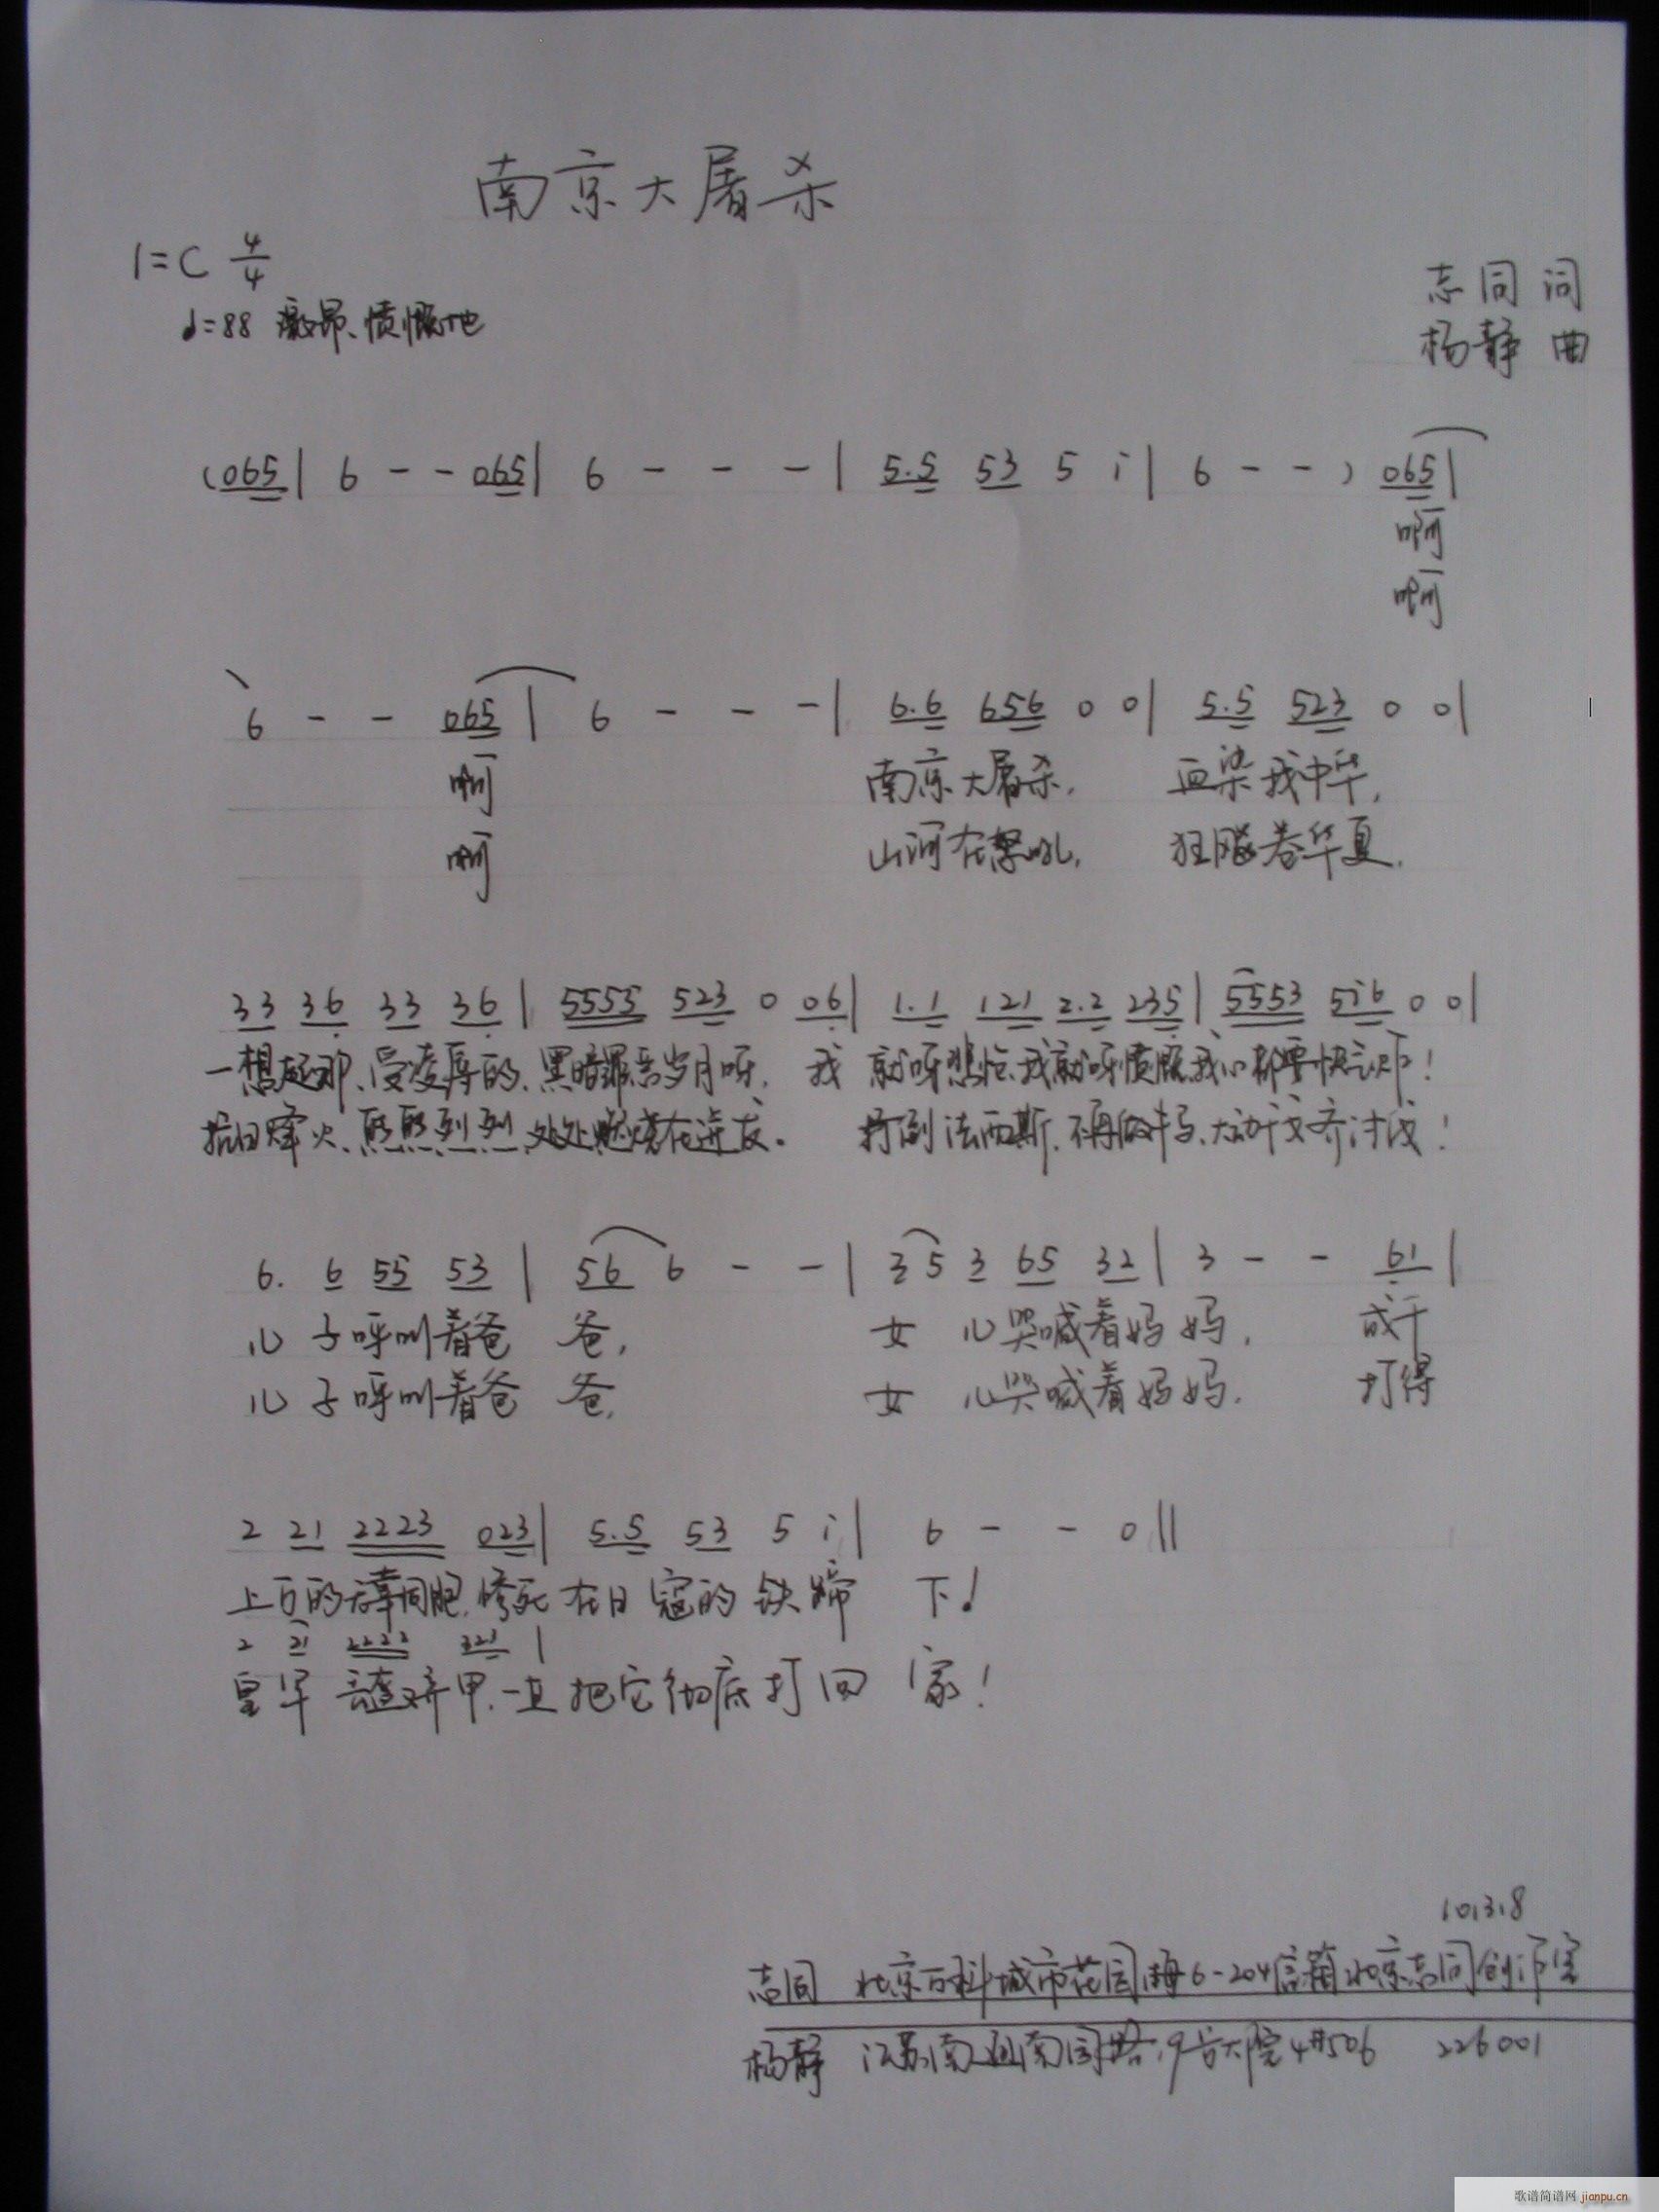 南京大屠杀
1=C 4/4
♩=88 激昂、愤慨地
志同 词
杨静 曲
(065| 6 - - 065| 6 - - - | 5.5 53 5 i | 6 - - ) 065|
啊
啊
6 - - 065 | 6 - - - | 6.6 656 0 0| 5.5 523 0 0|
啊 南京大屠杀, 血染我中华,
啊 山河在怒吼, 狂飚卷华夏.
33 36 33 36 | 5555 523 0 06| 1.1 121 2.2 235| 5553 5i6 0 0|
一想起那、受凌辱的、黑暗罪恶岁月呀, 我 就呀悲怆、我就呀愤慨、我心都要快 !
抗日烽火、熊熊烈烈、处处燃烧在进发。 打倒法西斯,不再做牛马、大动干戈齐讨伐!
6. 6 55 53 | 56 6 - - | 3 5 3 65 32 | 3 - - 61 |
儿 子呼叫着爸 爸, 女 儿哭喊着妈妈, 成千
儿 子呼叫着爸 爸, 女 儿哭喊着妈妈. 打得
2 21 2223 023| 5.5 53 5 i | 6 - - 0 ||
上万的无辜同胞,惨死在日寇的铁蹄 下!
2 21 2222 321 |
皇军 丢盔弃甲,一直把它彻底打回 家!
10.3.8
志同 北京万科城市花园 6-204信箱北京志同创作室
杨静 江苏南通南园路,9号大院4#506 226001
歌谱简谱网 jianpu.cn